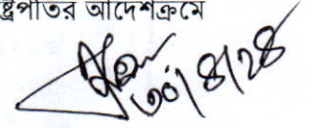 ষ্ট্রপতির আদেশক্রমে
৩০/৪/২৪